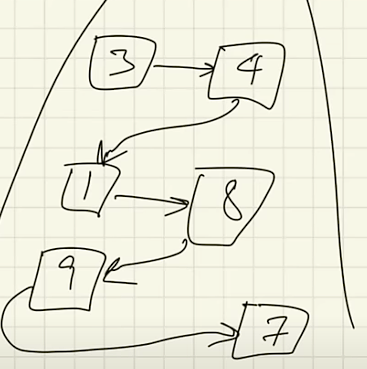 3 4
1 8
9
7